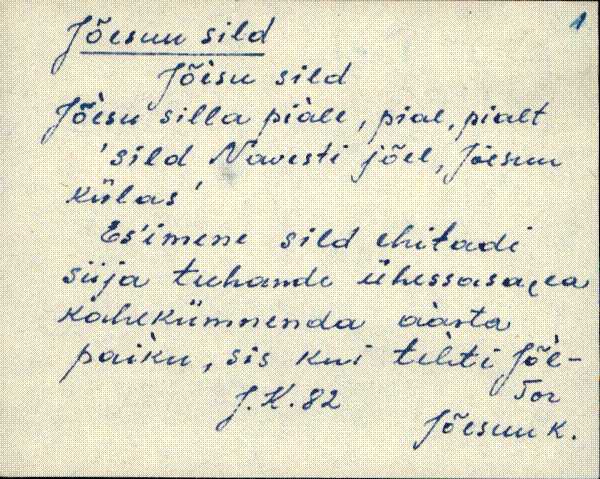 1
Jõesuu sild
Jõèsu sild
Jõèsu silla piàle, pial, pialt
'sild Navesti jõel, Jõesuu
külas'
Es'imene sild ehitadi
siija tuhande ühessasa,ea
kahekümnenda aàsta
paiku, sis kui tèhti Jõè-
J.K. 82
Tor
Jõesuu k.